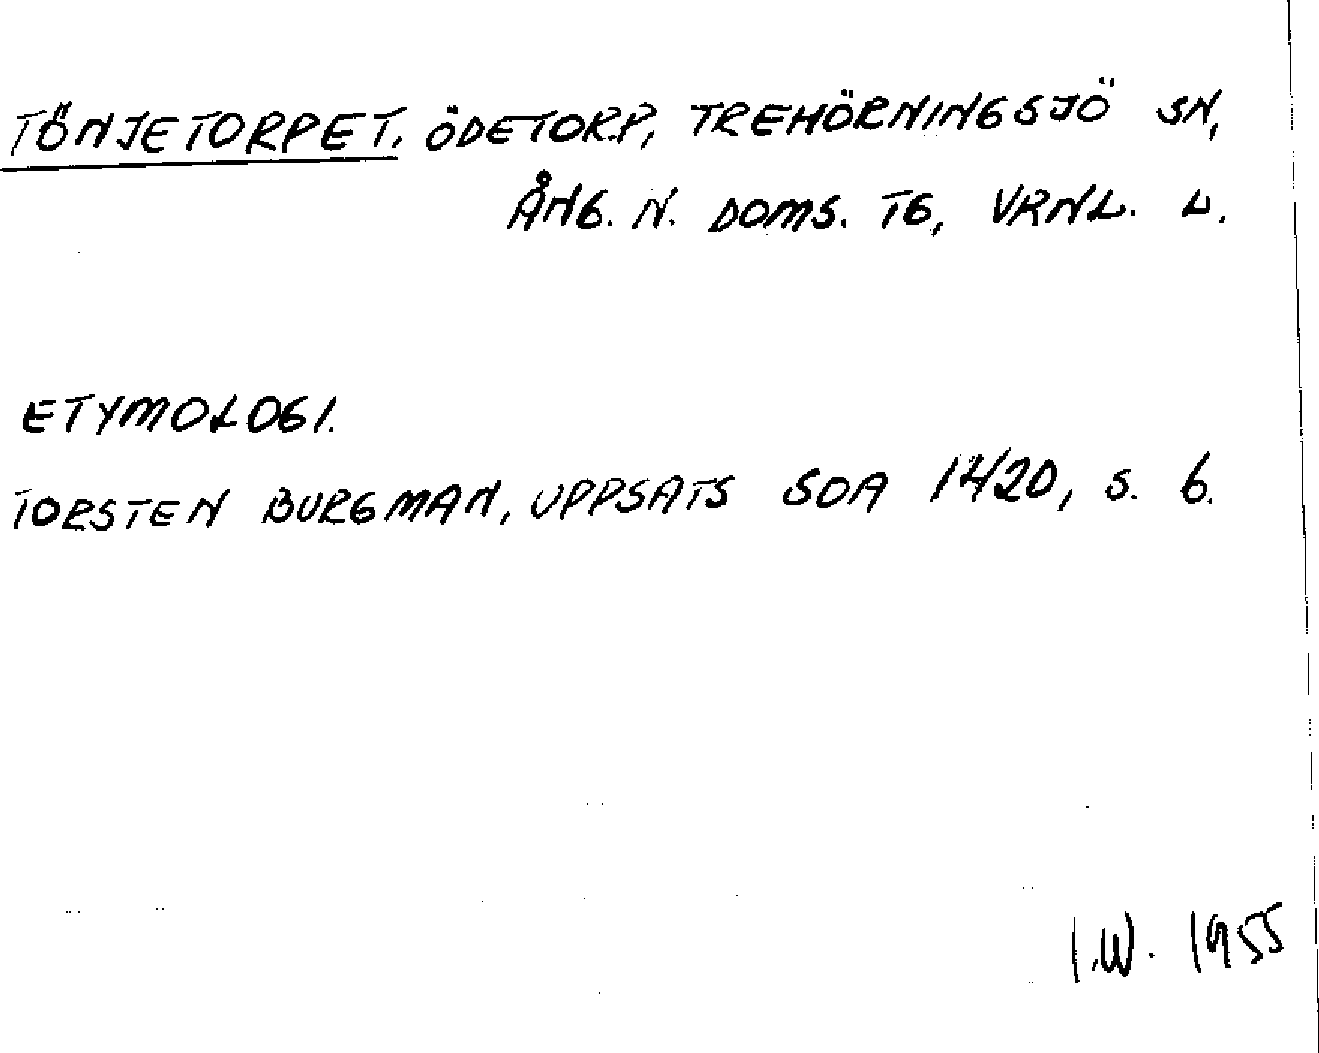 TÖNJETORPET. ÖDETORP, TREHÖRNINGSJÖ SN,
ÅNG. N. DOMS. TG, VRNL. L.
ETYMOLOGI.
TORSTEN BURGMAN, UPPSATS SOA 14/20, S. 6.
I.W. 1955